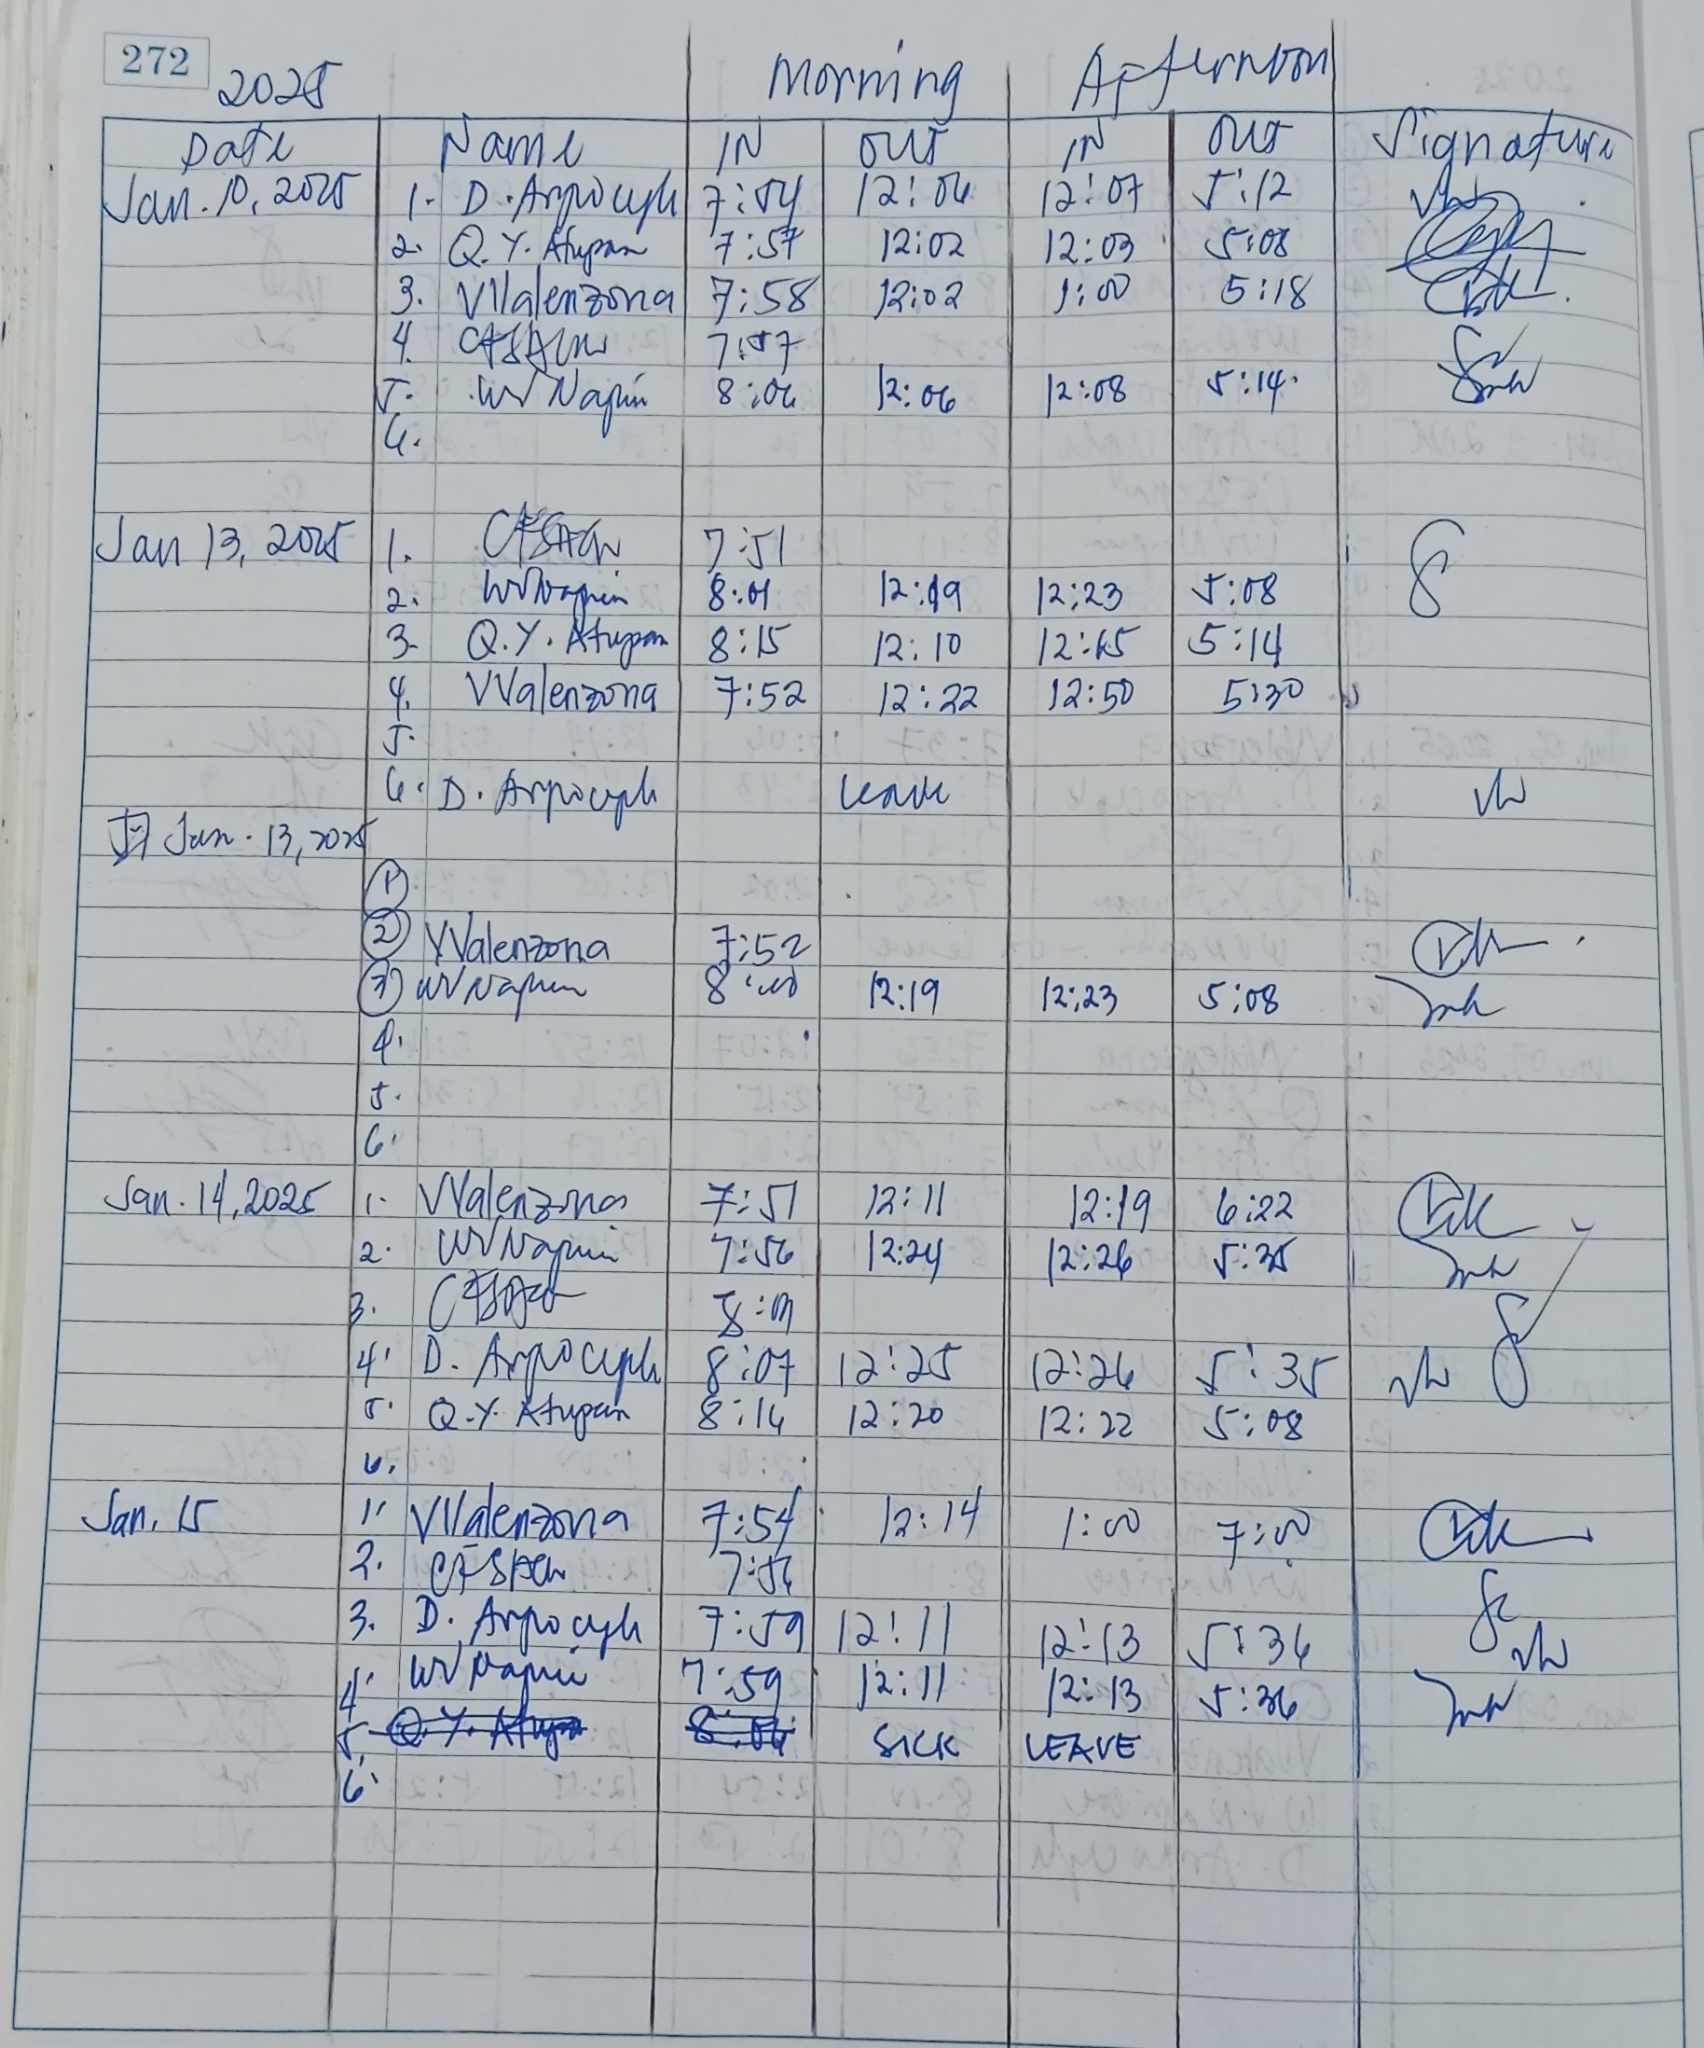 272
2025 Morning Afternoon
Date Name IN OUT IN OUT Signature
Jan. 10, 2025 1. D. Arpocyph 7:54 12:06 12:07 5:12
2. Q. Y. Atupan 7:57 12:02 12:03 5:08
3. VValenzona 7:58 12:02 1:00 5:18
4. 7:57
5. WV Napiri 8:06 12:06 12:08 5:14
6.
Jan 13, 2025 1. 7:51
2. 8:01 12:19 12:23 5:08
3. Q. Y. Atupan 8:15 12:10 12:15 5:14
4. VValenzona 7:52 12:22 12:50 5:30
5.
6. D. Arpocyph Leave
Jan. 13, 2025
1
2 VValenzona 7:52
3 8:00 12:19 12:23 5:08
4.
5.
6.
Jan. 14, 2025 1. VValenzona 7:51 12:11 12:19 6:22
2. 7:56 12:24 12:26 5:35
3. 8:01
4. D. Arpocyph 8:07 12:25 12:26 5:35
5. Q. Y. Atupan 8:14 12:20 12:22 5:08
6.
Jan. 15 1. VValenzona 7:54 12:14 1:00 7:00
2. 7:56
3. D. Arpocyph 7:59 12:11 12:13 5:36
4. 7:59 12:11 12:13 5:36
5. Q. Y. Atupan SICK LEAVE
6.